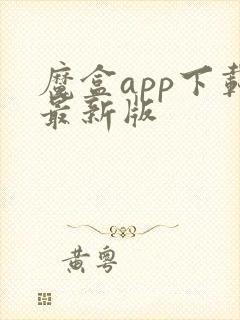 魔盒app下載
最新版
黄粤